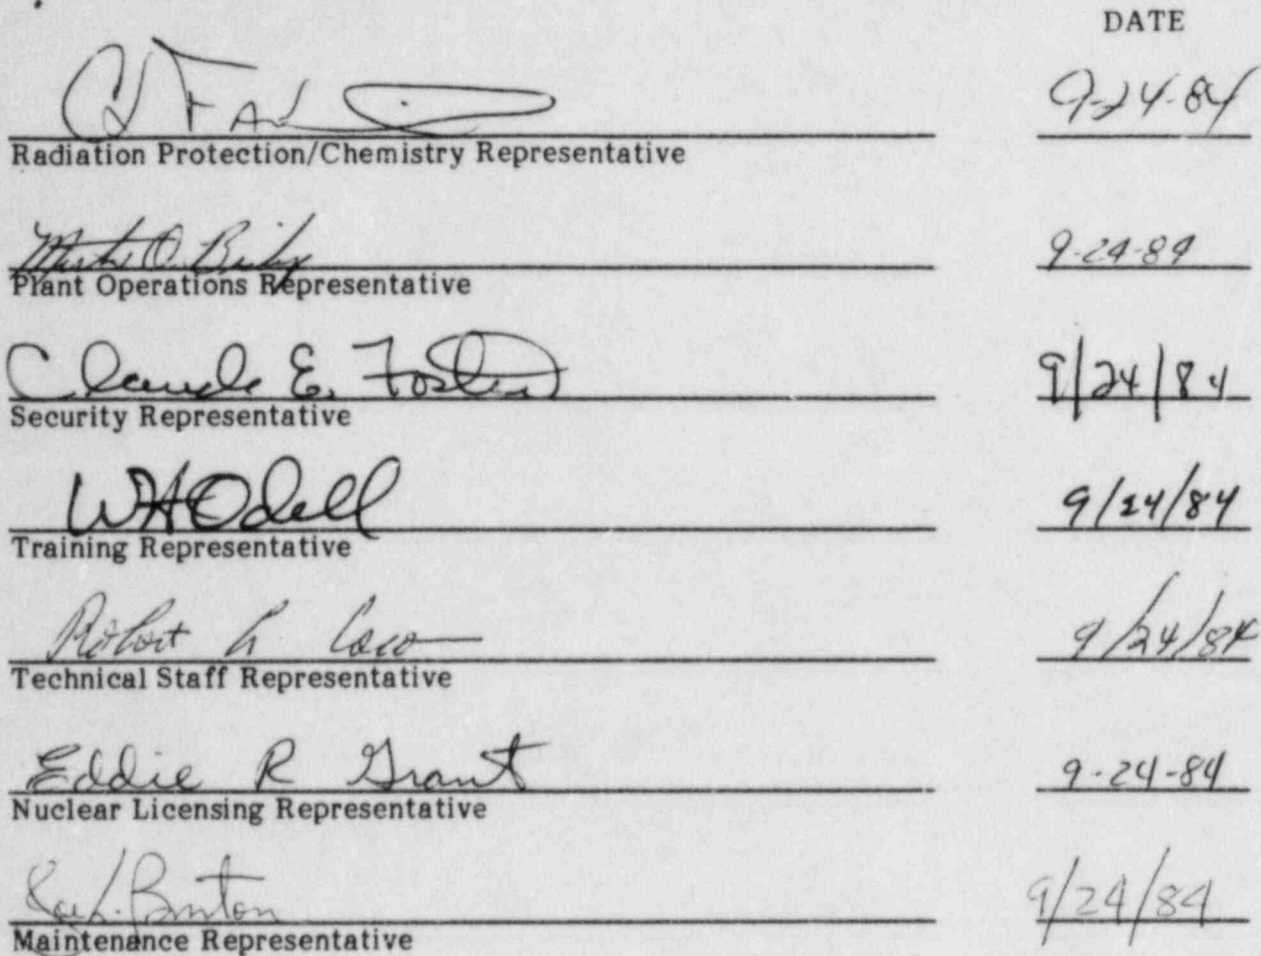 DATE
9-24-84
Radiation Protection/Chemistry Representative
9-24-84
Plant Operations Representative
Claude E. Foster 9/24/84
Security Representative
WH Odell 9/24/84
Training Representative
Robert 9/24/84
Technical Staff Representative
Eddie R Grant 9-24-84
Nuclear Licensing Representative
Burton 9/24/84
Maintenance Representative